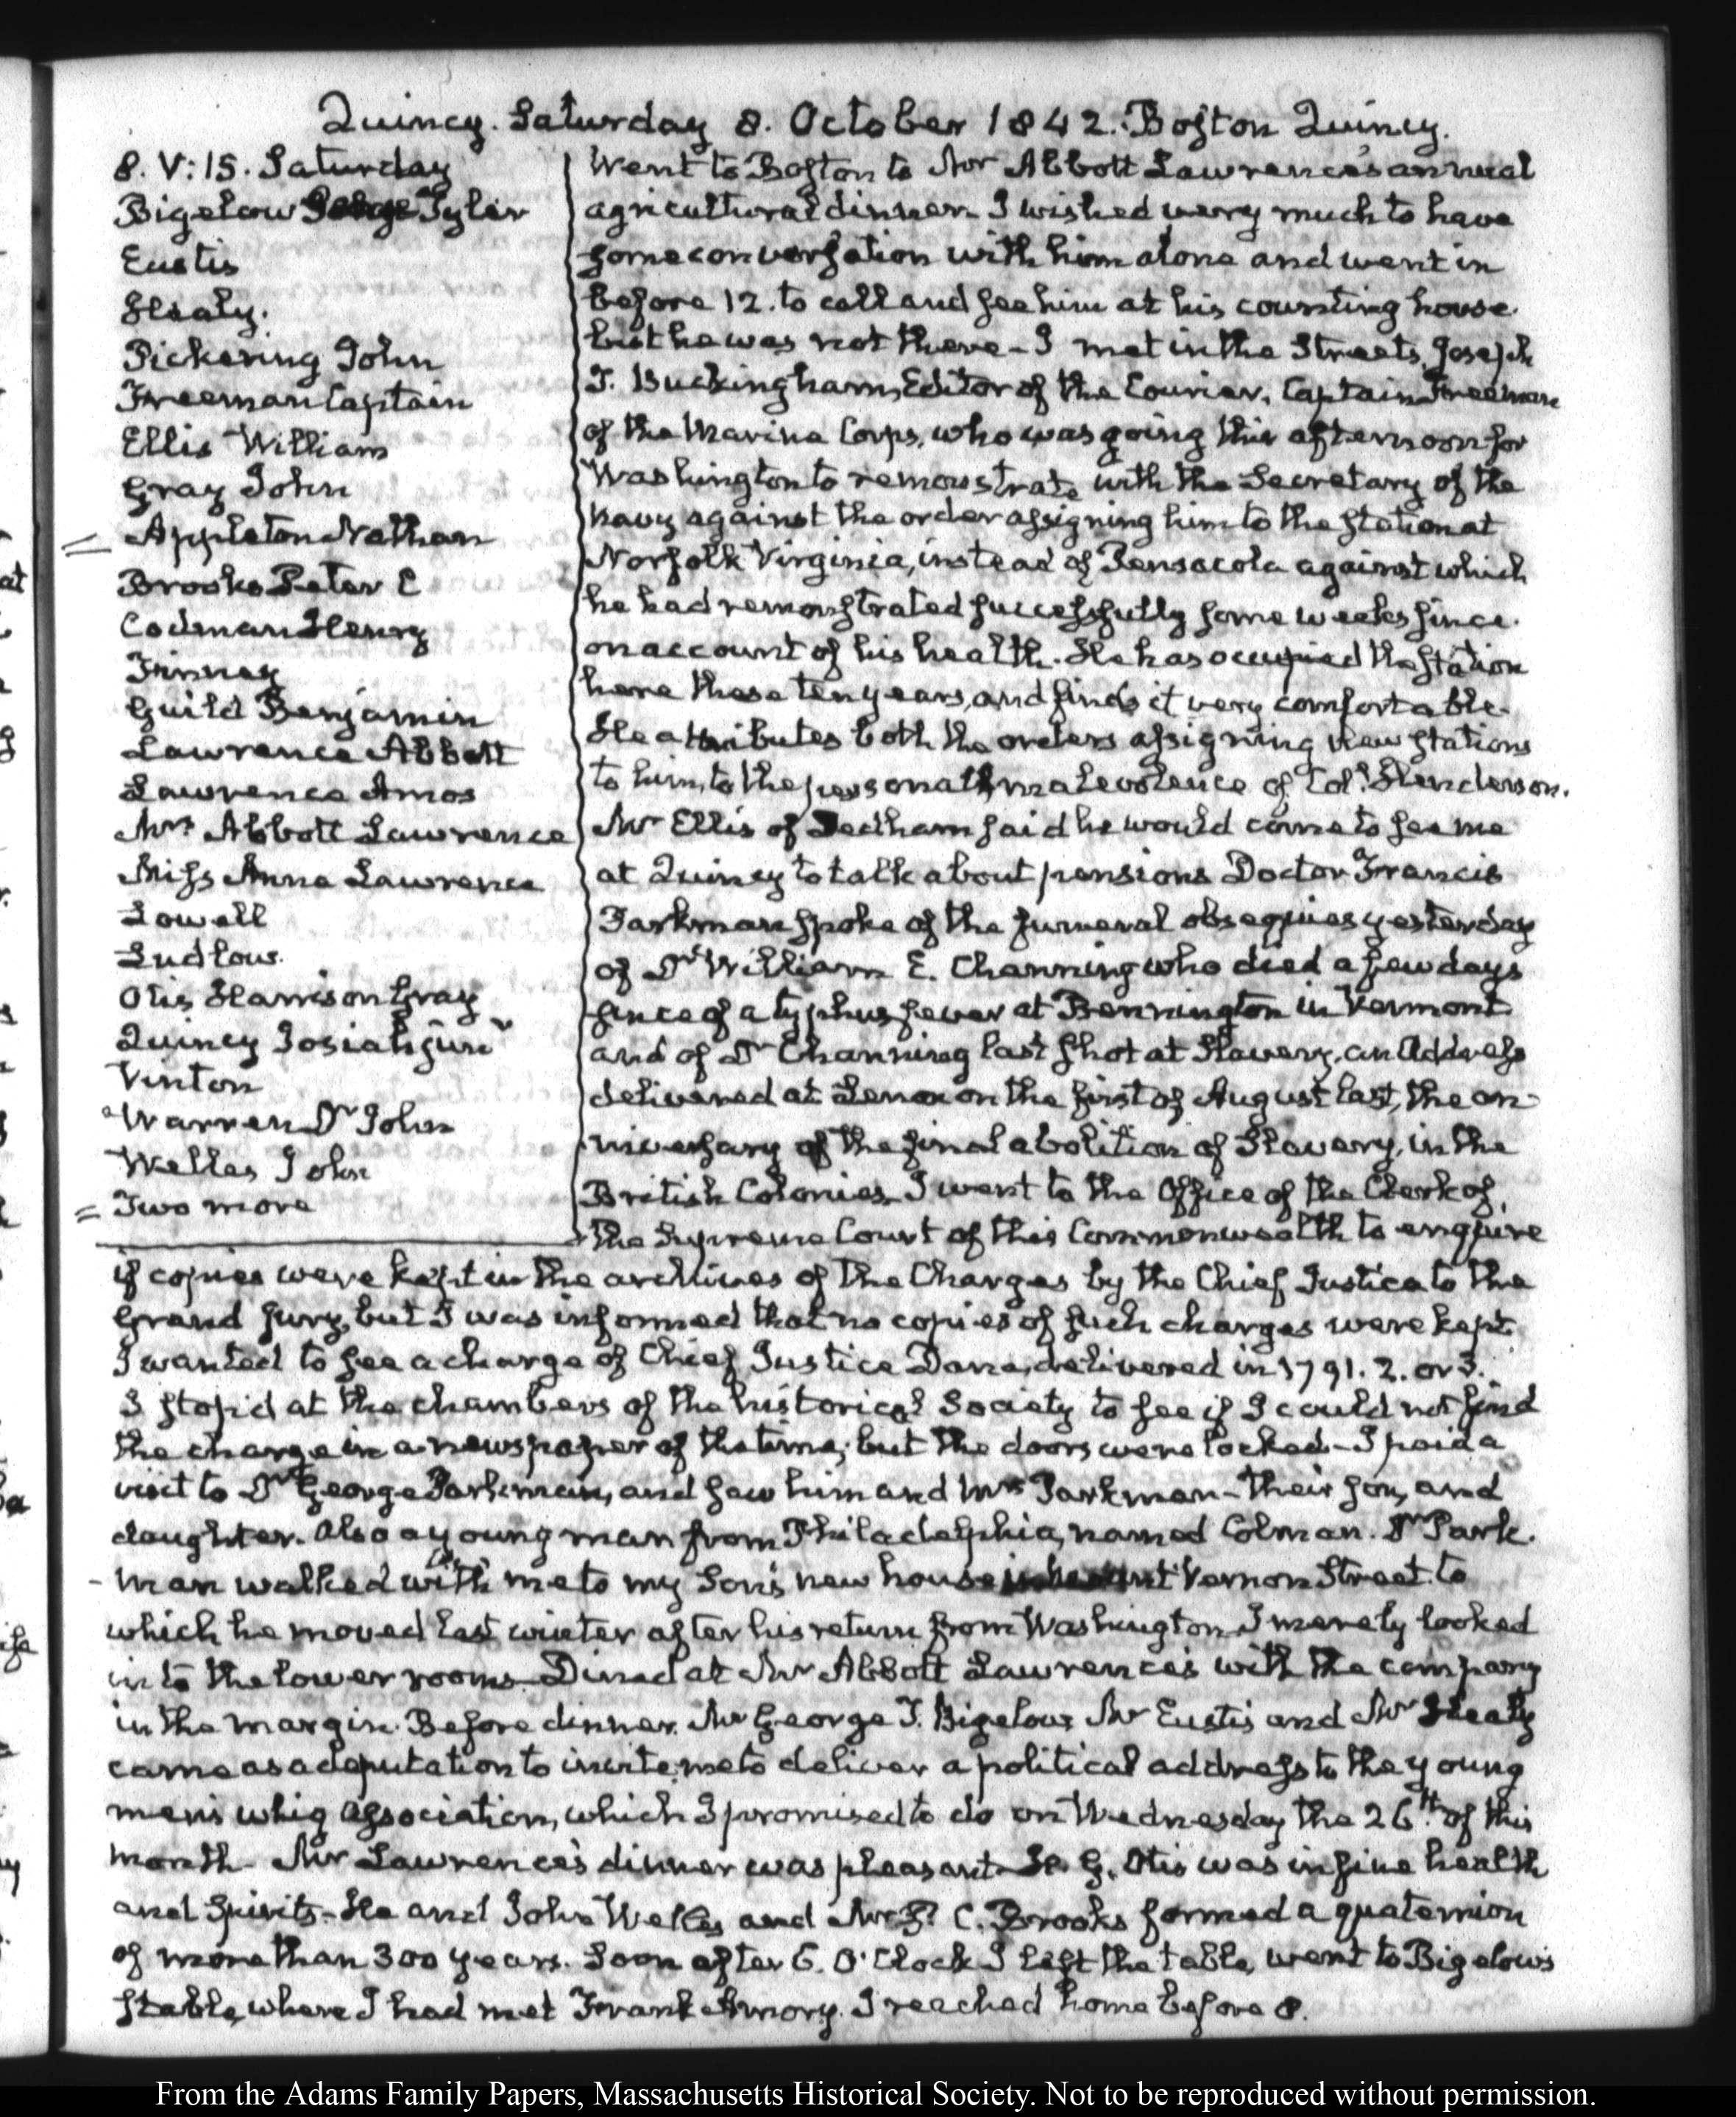 Quincy. Saturday 8. October 1842. Boston Quincy.
8. V:15. Saturday
Bigelow George Tyler
Eustis
Healy.
Pickering John
Freeman Captain
Ellis William
Gray John
Appleton Nathan
Brooks Peter C
Codman Henry
Finney
Guild Benjamin
Lawrence Abbott
Lawrence Amos
Mrs Abbott Lawrence
Miss Anna Lawrence
Lowell
Ludlow.
Otis Harrison Gray
Quincy Josiah junr
Vinton
Warren Dr John
Welles John
= Two more
Went to Boston to Mr Abbott Lawrence's annual
agricultural dinner. I wished very much to have
some conversation with him alone and went in
before 12. to call and see him at his counting house.
but he was not there - I met in the Streets, Joseph
T. Buckingham, Editor of the Courier, Captain Freeman
of the Marine Corps, who was going this afternoon for
Washington to remonstrate with the Secretary of the
Navy against the order assigning him to the station at
Norfolk Virginia, instead of Pensacola against which
he had remonstrated successfully some weeks since.
on account of his health. He has occupied the station
here these ten years, and finds it very comfortable.
He attributes both the orders assigning new stations
to him, to the personal malevolence of Col. Henderson.
Mr Ellis of Dedham said he would come to see me
at Quincy to talk about pensions Doctor Francis
Parkman spoke of the funeral obsequies yesterday
of Dr William E. Channing who died a few days
since of a typhus fever at Bennington in Vermont
and of Dr Channing last shot at Slavery, an Address
delivered at Lenox on the first of August last, the an-
niversary of the final abolition of Slavery, in the
British Colonies. I went to the Office of the Clerk of
the Supreme Court of this Commonwealth to enquire
if copies were kept in the archives of the Charges by the Chief Justice to the
Grand Jury, but I was informed that no copies of such charges were kept.
I wanted to see a charge of Chief Justice Dana, delivered in 1791. 2. or 3.
I stop'd at the chambers of the historical Society to see if I could not find
the charge in a newspaper of the time; but the doors were locked - I paid a
visit to Dr George Parkman, and saw him and Mrs Parkman - their son, and
daughter. Also a young man from Philadelphia, named Colman. Dr Park-
man walked with me to my Son's new house in Mount Vernon Street to
which he moved last winter after his return from Washington. I merely looked
in to the lower rooms. Dined at Mr Abbott Lawrence's with the company
in the margin. Before dinner. Mr George T. Bigelow, Mr Eustis and Mr Healy
came as a deputation to invite me to deliver a political address to the young
men's whig Association, which I promised to do on Wednesday the 26th. of this
month - Mr Lawrence's dinner was pleasant. H. G. Otis was in fine health
and Spirits - He and John Welles and Mr P. C. Brooks formed a quaternion
of more than 300 years. Soon after 6. O'Clock I left the table, went to Bigelow's
stable, where I had met Frank Amory. I reached home before 8.
From the Adams Family Papers, Massachusetts Historical Society. Not to be reproduced without permission.